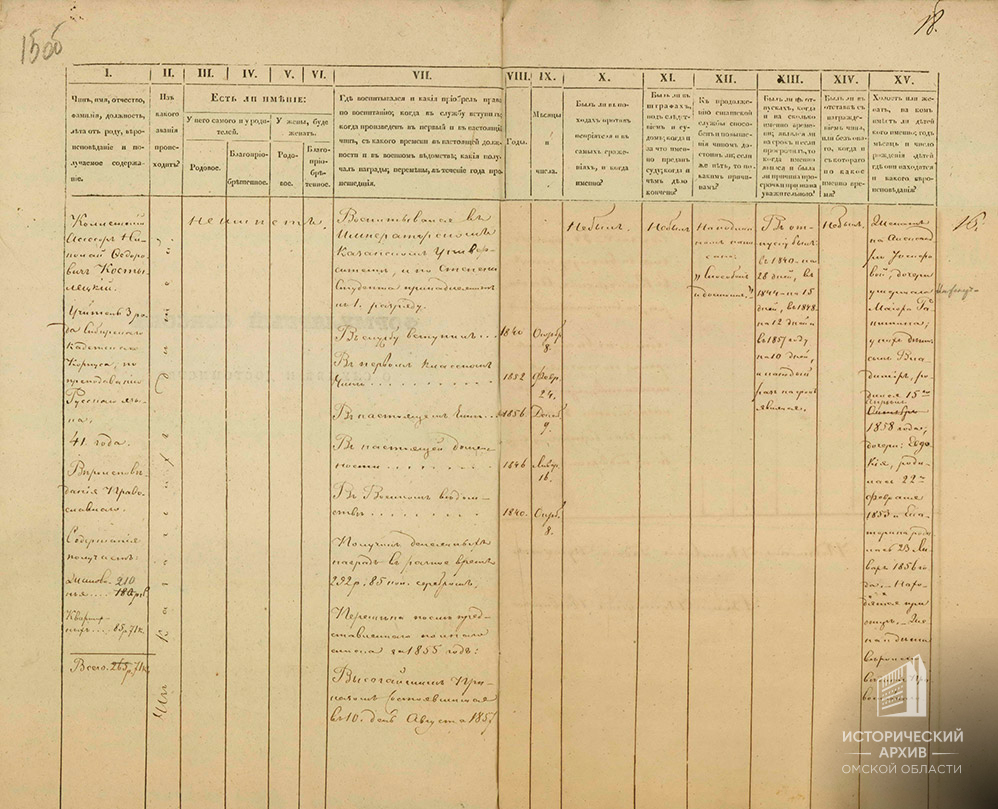 15об
18.
I.
II.
III.
IV.
V.
VI.
VII.
VIII.
IX.
X.
XI.
XII.
XIII.
XIV.
XV.
Чинъ, имя, отчество,
фамилія, должность,
лѣта отъ роду, вѣро-
исповѣданіе и по-
лучаемое содержа-
ніе.
Изъ
какого
званія
проис-
ходитъ?
Есть ли имѣніе:
У него самого и у роди-
телей.
У жены, буде
женатъ.
Родовое.
Благопріо-
брѣтенное.
Родо-
вое.
Благо-
пріо-
брѣ-
тенное.
Гдѣ воспитывался и какія пріобрѣлъ права
по воспитанію; когда въ службу вступилъ;
когда произведенъ въ первый и въ настоящій
чинъ, съ какого времени въ настоящей долж-
ности и въ военномъ вѣдомствѣ; какія полу-
чалъ награды; перемѣны, въ теченіе года про-
исшедшія.
Годы.
Мѣсяцы
и
числа.
Былъ ли въ по-
ходахъ противъ
непріятеля и въ
самыхъ сраже-
ніяхъ, и когда
именно?
Былъ ли въ
штрафахъ,
подъ слѣдст-
віемъ и су-
домъ; когда и
за что имен-
но преданъ
суду; когда и
чѣмъ дѣло
кончено?
Къ продолженію
статской
службы спосо-
бенъ и повыше-
нія чиномъ до-
стоинъ ли; если
же нѣтъ, то по
какимъ причи-
намъ?
Былъ ли въ от-
пускахъ, когда
и на сколько
именно време-
ни; являлся ли
на срокъ и если
просрочилъ, то
когда именно
явился и была
ли причина про-
срочки признана
уважительною?
Былъ ли въ
отставкѣ съ
награжде-
ніемъ чина,
или безъ о-
наго, когда и
съ котораго
по какое
именно вре-
мя?
Холостъ или же-
натъ, на комъ
имѣетъ ли дѣтей
кого именно; годъ
мѣсяцъ и число
рожденія дѣтей
гдѣ они находятся
и какого вѣро-
исповѣданія?
Коллежскій
Ассесоръ Ни-
колай Ѳедоро-
вичъ Косты-
лецкій.
Учитель 3 ро-
да Сибирскаго
Кадетскаго
Корпуса, по
преподаванію
Русскаго язы-
ка,
41 года.
Вѣроисповѣ-
данія Право-
славнаго.
Содержанія
получаетъ:
210
Квартир-
ныхъ ... 85р.71к.
Всего. 265р.71к.
Не имѣетъ.
Воспитывался въ
Императорскомъ
Казанскомъ Универ-
ситетѣ, и по степени
Студента принадлежитъ
къ 1. разряду.
Въ службу вступилъ ...
1840
8.
Въ первомъ классномъ
чинѣ . . . . . . . . .
1852
Февр.
24.
Въ настоящемъ чинѣ ...
1856
Декаб.
9.
Въ настоящей долж-
ности . . . . . . . .
1846
Январ.
16.
Въ Военномъ вѣдом-
ствѣ . . . . . . . .
1840.
8.
Получилъ денежныхъ
наградъ въ разное время
232 р. 85 коп. серебромъ.
Перемѣна послѣ пред-
ставленнаго
списка за 1855 годъ:
Высочайшимъ При-
казомъ состоявшимся
въ 10. день Августа 1857
Не былъ.
Не былъ
"Способенъ
и достоинъ."
Въ от-
пуску былъ:
въ 1840 на
28 дней, въ
1844 на 15
дней, въ 1848
на 12 дней и
въ 1857 году
на 10 дней,
и каждый
разъ на срокъ
являлся.
Не былъ.
Женатъ
на Алексан-
дрѣ
дочери
умершаго
Маіора
у нихъ дѣти:
сынъ Вла-
диміръ, ро-
дился 15го
1858 года,
дочери: Евдо-
кія, роди-
лась 22го
февраля
1853 и Ека-
терина роди-
лась 23 Ян-
варя 1856 го-
да. Нахо-
дятся при
отцѣ. Же-
на и дѣти
16.
ИСТОРИЧЕСКИЙ
АРХИВ
ОМСКОЙ ОБЛАСТИ